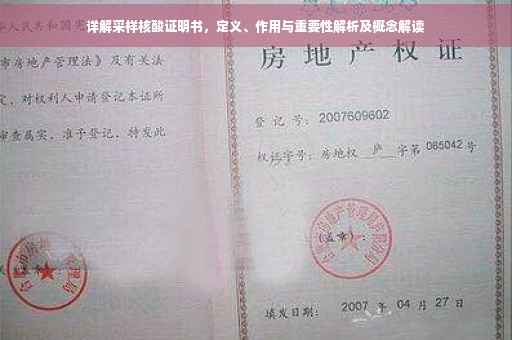 详解采样核酸证明书，定义、作用与重要性解析及概念解读
人民共和国宪
市房地产管理法》及有关法
定，对权利人申请登记本证所
审查属实，准予登记，特发此
房地产权证
登记号：2007609602
权证字号：房地权 庐 字第 065042 号
(盖章)：
填发日期：2007 年 04 月 27 日